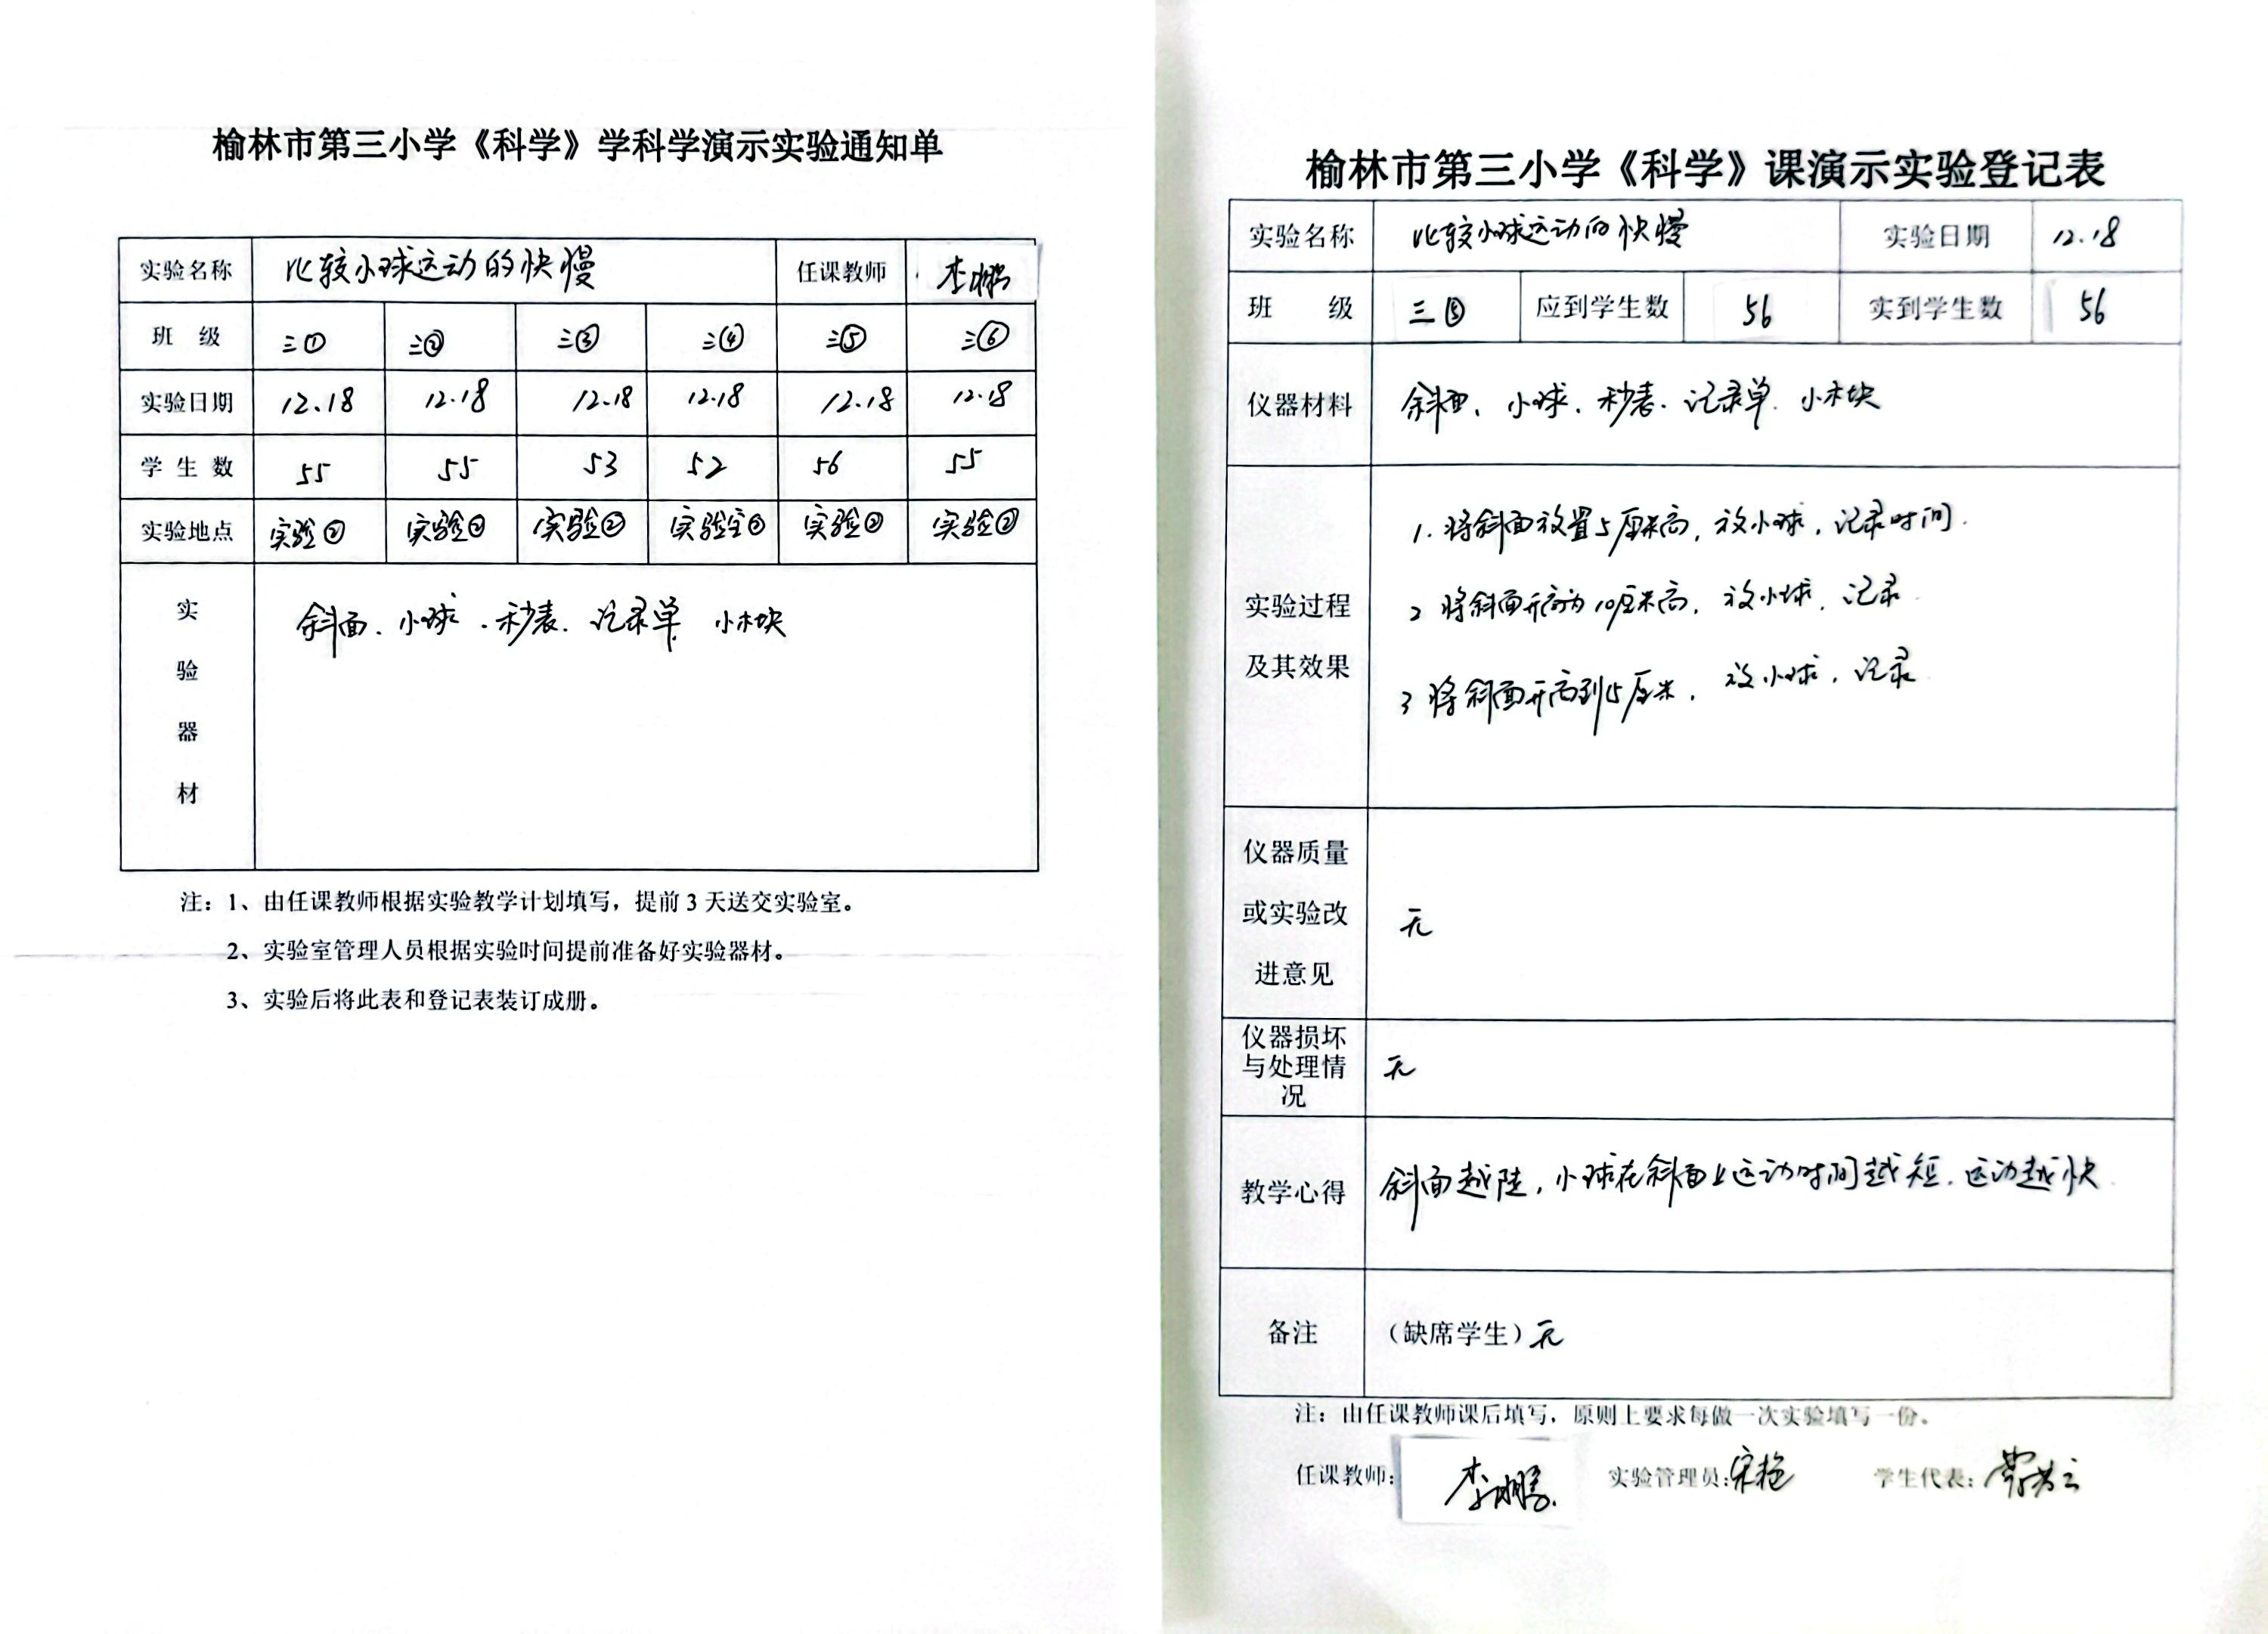 榆林市第三小学《科学》学科学演示实验通知单
实验名称 比较小球运动的快慢 任课教师 李鹏
班 级 三① 三② 三③ 三④ 三⑤ 三⑥
实验日期 12.18 12.18 12.18 12.18 12.18 12.18
学 生 数 55 55 53 52 56 55
实验地点 实验② 实验② 实验② 实验室② 实验② 实验②
实验器材 斜面、小球、秒表、记录单 小木块
注：1、由任课教师根据实验教学计划填写，提前3天送交实验室。
2、实验室管理人员根据实验时间提前准备好实验器材。
3、实验后将此表和登记表装订成册。
榆林市第三小学《科学》课演示实验登记表
实验名称 比较小球运动的快慢 实验日期 12.18
班 级 三⑤ 应到学生数 56 实到学生数 56
仪器材料 斜面、小球、秒表、记录单、小木块
实验过程
及其效果
1. 将斜面放置5厘米高，放小球，记录时间.
2 将斜面升高为10厘米高，放小球，记录
3 将斜面升高到15厘米，放小球，记录
仪器质量
或实验改
进意见
无
仪器损坏
与处理情
况
无
教学心得 斜面越陡，小球在斜面上运动时间越短，运动越快
备注 （缺席学生）无
注：由任课教师课后填写，原则上要求每做一次实验填写一份。
任课教师：李鹏 实验管理员：宋艳 学生代表：